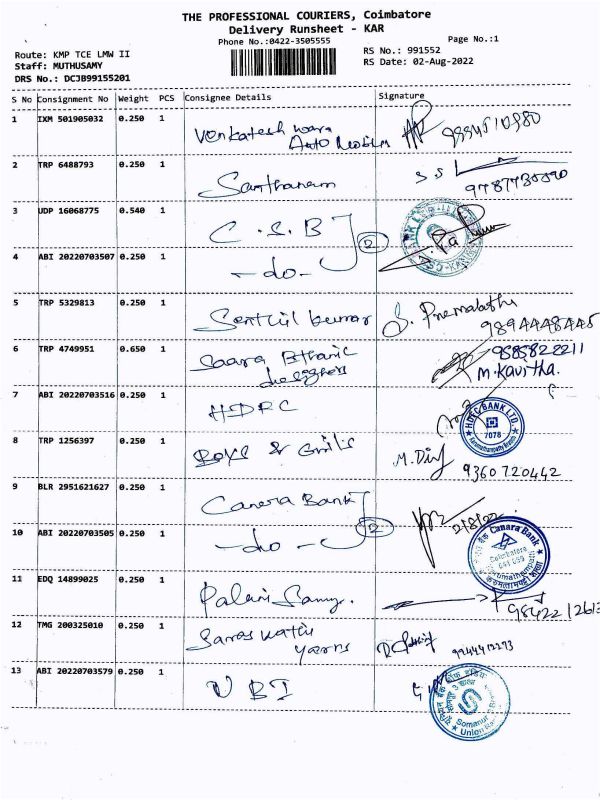 THE PROFESSIONAL COURIERS, Coimbatore
Delivery Runsheet - KAR
Phone No.:0422-3505555
Page No.:1
Route: KMP TCE LMW II
RS No.: 991552
Staff: MUTHUSAMY
RS Date: 02-Aug-2022
DRS No.: DCJB99155201
S No Consignment No Weight PCS Consignee Details Signature
1 IXM 501905032 0.250 1 Venkateshwara
Auto
2 TRP 6488793 0.250 1 Santhanam S S
3 UDP 16068775 0.540 1 C.S.B
4 ABI 20220703507 0.250 1 -do- 2
5 TRP 5329813 0.250 1 Senthil kumar S. Premalatha
9894448445
6 TRP 4749951 0.650 1 Saara Ethnic 9585822211
Designers M.Kavitha.
7 ABI 20220703516 0.250 1 HDFC
HDFC BANK LTD.
7078
8 TRP 1256397 0.250 1 Boys & Girls
9360720442
9 BLR 2951621627 0.250 1 Canera Bank 2/8/22
10 ABI 20220703505 0.250 1 -do- 2
Canara Bank
Coimbatore
11 EDQ 14899025 0.250 1 Palani Samy.
12 TMG 200325010 0.250 1 Saraswathi
yarns
13 ABI 20220703579 0.250 1 UBI
Somanur
Union Bank